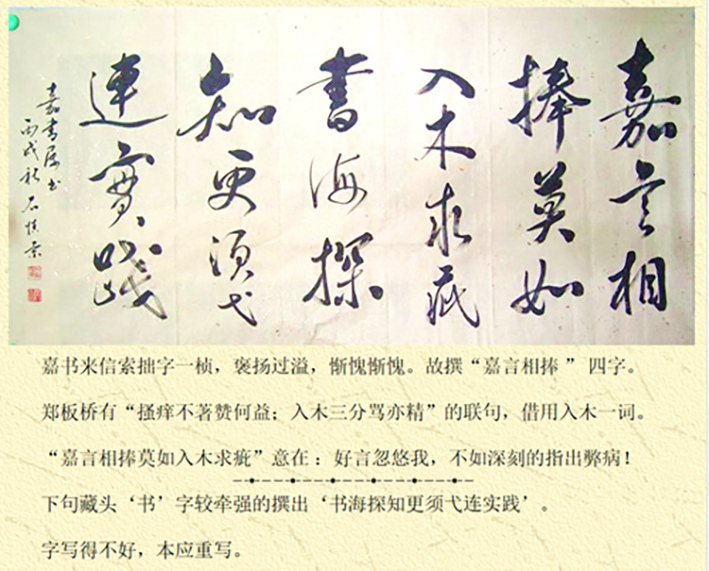 嘉言相
捧莫如
入木求疵
書海探
知更须弋
連實踐
嘉書属书
丙戌秋石
嘉书来信索拙字一桢，褒扬过溢，惭愧惭愧。故撰“嘉言相捧 ” 四字。
郑板桥有“搔痒不著赞何益；入木三分骂亦精”的联句，借用入木一词。
“嘉言相捧莫如入木求疵”意在 ：好言忽悠我，不如深刻的指出弊病！
下句藏头‘书’字较牵强的撰出‘书海探知更须弋连实践’。
字写得不好，本应重写。